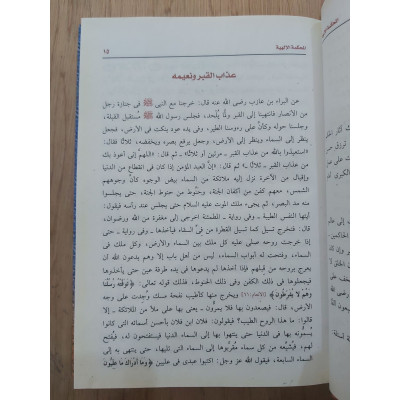 المحكمة الإلهية
١٥
عذاب القبر ونعيمه
عن البراء بن عازب رضى الله عنه قال: خرجنا مع النبى ﷺ فى جنازة رجل
من الأنصار فانتهينا إلى القبر ولَّما يُلْحد، فجلس رسول الله ﷺ مُستقبل القبلة،
وجلسنا حوله وكأنَّ على رءوسنا الطير، وفى يده عود ينكت فى الأرض، فجعل
ينظر إلى السماء وينظر إلى الأرض، وجعل يرفع بصره ويخفضه، ثلاثًا فقال:
«استعيذوا بالله من عذاب القبر ـ مرتين أو ثلاثًا» ـ ثم قال: «اللهمَّ إنى أعوذ بك
من عذاب القبر ـ ثلاثًا» ـ ثم قال: «إنَّ العبد المؤمن إذا كان فى انقطاع من الدنيا
وإقبال من الآخرة نزل إليه ملائكة من السماء بيض الوجوه كأنَّ وجوههم
الشمس، معهم كفن من أكفان الجنة، وحَنُوط من حنوط الجنة، حتى يجلسوا
منه مد البصر، ثم يجىء ملك الموت عليه السلام حتى يجلس عند رأسه فيقول:
أيتها النفس الطيبة ـ وفى رواية ـ المطمئنة اخرجى إلى مغفرة من الله ورضوان،
قال: فتخرج تسيل كما تسيل القطرة من فِىِّ السقاء فيأخذها ـ وفى رواية ـ حتى
إذا خرجت روحه صلى عليه كل ملك بين السماء والأرض، وكل ملك فى
السماء، وفتحت له أبواب السماء، ليس من أهل باب إلا وهم يدعون الله أن
يعرج بروحه من قِبلهم فإذا أخذها لم يدعوها فى يده طرفة عين حتى يأخذوها
فيجعلوها فى ذلك الكفن وفى ذلك الحنوط، فذلك قوله تعالى: ﴿تَوَفَّتْهُ رُسُلُنَا
وَهُمْ لا يُفَرِّطُونَ﴾ [الأنعام: ٦١] ويخرج منها كأطيب نفحة مسك وُجدت على وجه
الأرض، قال: فيصعدون بها فلا يمرون ـ يعنى بها على ملأ من الملائكة ـ إلا
قالوا: ما هذا الروح الطيب؟ فيقولون: فلان ابن فلان بأحسن أسمائه التى كانوا
يسمُّونه بها فى الدنيا حتى ينتهوا بها إلى السماء الدنيا فيستفتحون له، فيُفتح
لهم، فيشيِّعه من كل سماء مُقرَّبوها إلى السماء التى تليها، حتى ينتهى به إلى
السماء السابعة، فيقول الله عز وجل: اكتبوا عبدى فى عليين ﴿وَمَا أَدْرَاكَ مَا عِلِّيُّونَ